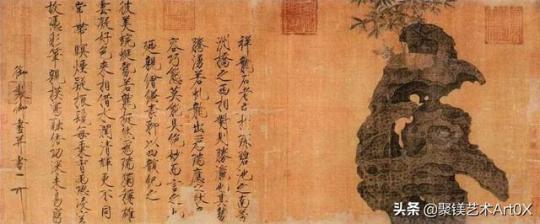 祥龍石者立於環碧池之南芳
洲橋之西相對則勝瀛也其勢
騰湧若虬龍出為瑞應之狀奇
容巧態莫能具絕妙而言之也
廼親繪縑素聊以四韻紀之
彼美蜿蜒勢若龍挺然為瑞獨稱雄
雲凝好色來相借水潤清輝更不同
常帶暝煙疑振鬣每乘宵雨恐凌空
故憑彩筆親模寫融結功深未易窮
御製御畫并書
头条 @聚镁艺术ArtOX